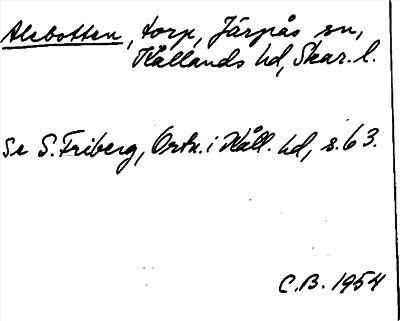 Alebotten, torp, Järpås sn,
Kållands hd, Skar. l.
Se S. Friberg, Ortn. i Kåll. hd, s. 63.
C.B. 1954